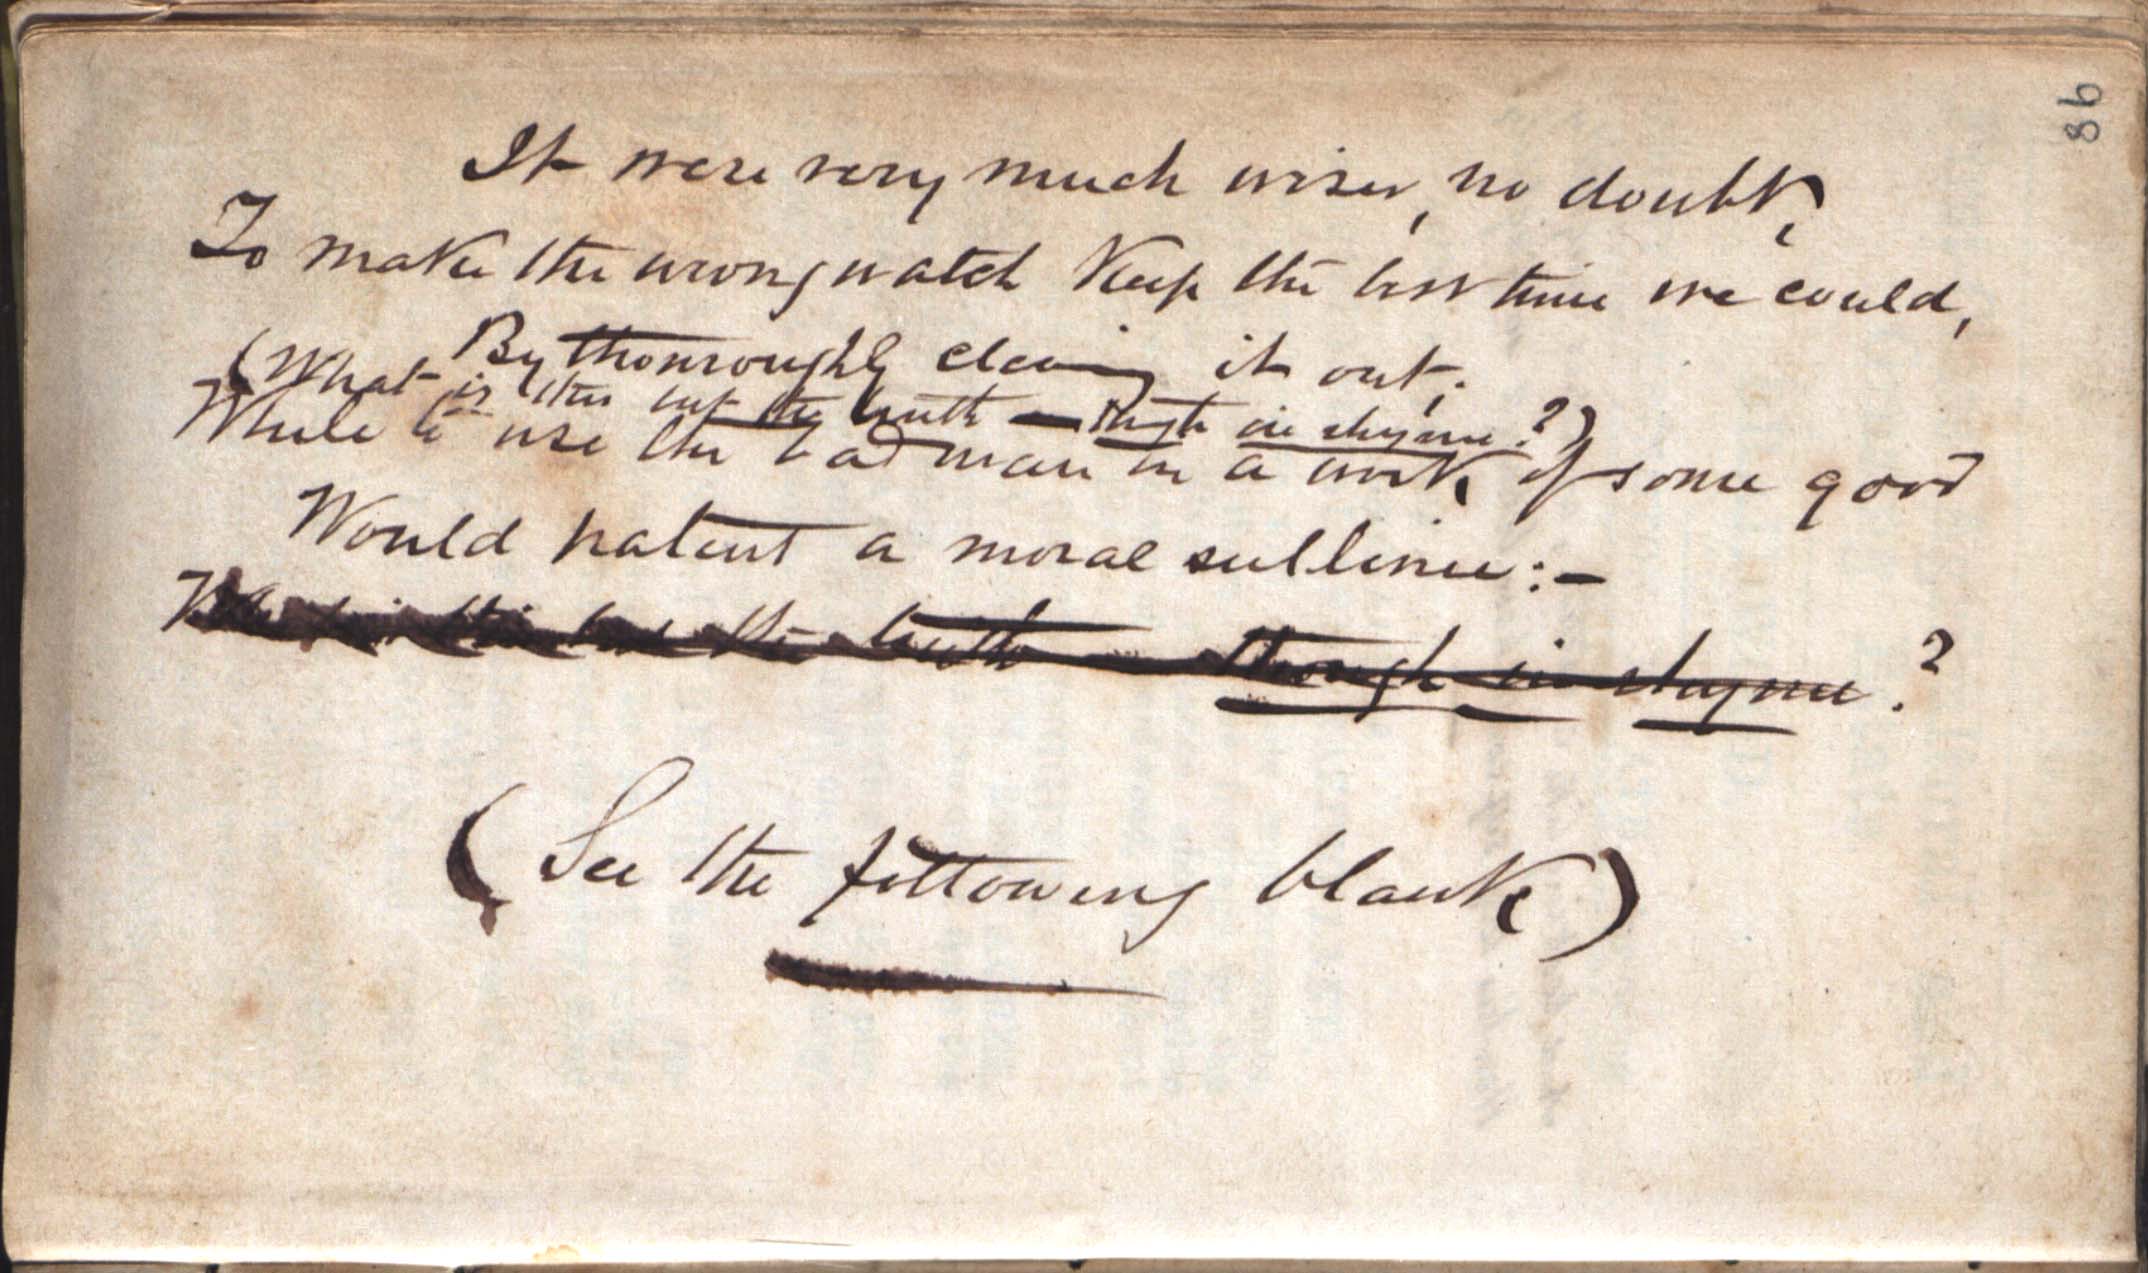 98
It were very much wiser, no doubt,
To make the wrong watch keep the best time we could,
By thouroughly cleaning it out;
(What is this but the truth — though in rhyme?)
While to use the bad man in a work of some good
Would patent a moral sublime:—
What is this but the truth — though in rhyme?
(See the following blank)